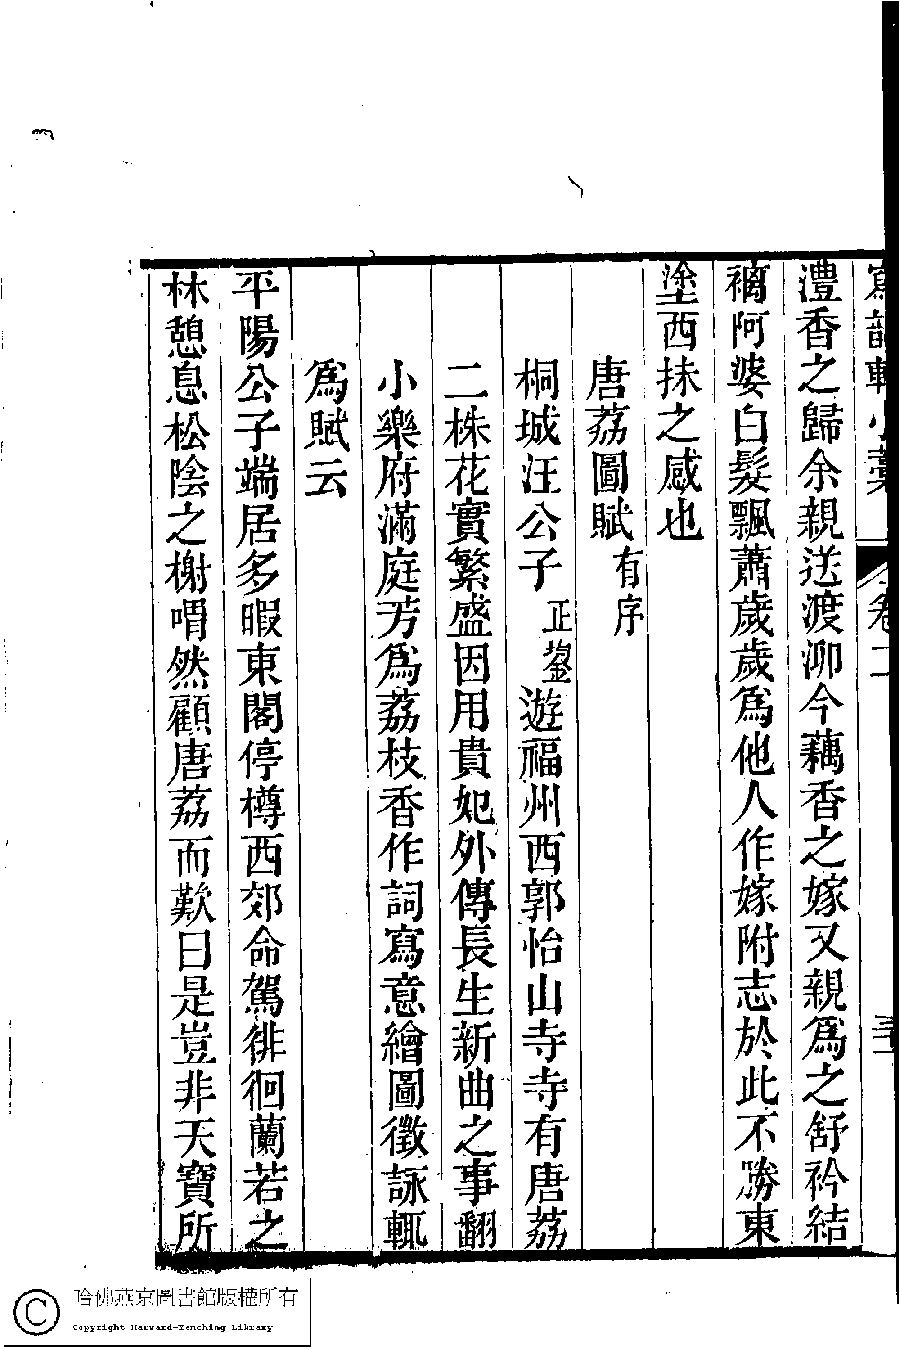 寫韻軒小藁 卷二 三
澧香之歸余親送渡泖今藕香之嫁又親爲之舒衿結
褵阿婆白髮飄蕭歲歲爲他人作嫁附志於此不勝東
塗西抹之感也
唐荔圖賦有序
桐城汪公子正鋆遊福州西郭怡山寺寺有唐荔
二株花實繁盛因用貴妃外傳長生新曲之事翻
小樂府滿庭芳爲荔枝香作詞寫意繪圖徵詠輒
爲賦云
平陽公子端居多暇東閣停樽西郊命駕徘徊蘭若之
林憩息松陰之榭喟然顧唐荔而歎曰是豈非天寶所
哈佛燕京圖書館版權所有
Copyright Harvard-Yenching Library